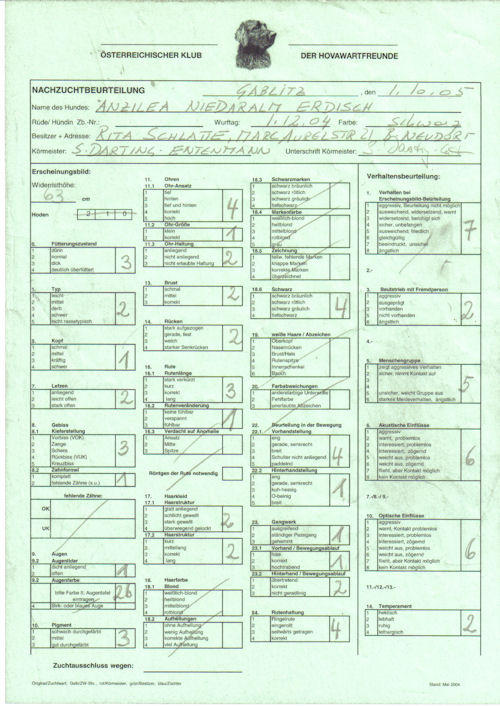 ÖSTERREICHISCHER KLUB DER HOVAWARTFREUNDE
NACHZUCHTBEURTEILUNG GABLITZ , den 1.10.05
Name des Hundes: ANZILEA NIEDARALM ERDISCH
Rüde/ Hündin Zb.-Nr.: Wurftag: 1.12.04 Farbe:
Besitzer + Adresse: RITA
Körmeister: S. DARTING-ENTENMANN Unterschrift Körmeister:
Erscheinungsbild:
Widerristhöhe:
63 cm
Hoden 2 1 0
6. Fütterungszustand
1 dünn
2 normal
3 dick
4 deutlich überfüttert
3
7. Typ
1 leicht
2 mittel
3 derb
4 schwer
5 nicht rassetypisch
2
5. Kopf
1 schmal
2 mittel
3 kräftig
4 schwer
1
7. Lefzen
1 anliegend
2 leicht offen
3 stark offen
2
8. Gebiss
8.1 Kieferstellung
1 Vorbiss (VÜK)
2 Zange
3 Schere
4 Rückbiss (ÜK)
5 Kreuzbiss
3
8.2 Zahnformel
1 komplett
2 fehlende Zähne (s.u.)
1
fehlende Zähne:
OK
UK
9. Augen
9.2 Augenlider
1 dicht anliegend
2 offen
1
9.2 Augenfarbe
bitte Farbe lt. Augentafel
eintragen
2b
4 Birk- oder blaues Auge
10. Pigment
1 schwach durchgefärbt
2 mittel
3 gut durchgefärbt
3
11. Ohren
11.1 Ohr-Ansatz
1 tief
2 hinten
3 tief und hinten
4 korrekt
5 hoch
4
11.2 Ohr-Größe
1 klein
2 korrekt
1
11.3 Ohr-Haltung
1 anliegend
2 nicht anliegend
3 nicht erlaubte Haltung
2
13. Brust
1 schmal
2 mittel
3 korrekt
2
14. Rücken
1 stark aufgezogen
2 gerade, fest
3 weich
4 starker Senkrücken
2
16. Rute
16.1 Rutenlänge
1 stark verkürzt
2 kurz
3 korrekt
4 lang
3
16.2 Rutenveränderung
1 keine fühlbar
2 verspannt
3 fühlbar
1
16.3 Verdacht auf Anomalie
1 Ansatz
2 Mitte
3 Spitze
Röntgen der Rute notwendig
17. Haarkleid
17.1 Haarstruktur
1 glatt anliegend
2 schlicht gewellt
3 stark gewellt
4 überwiegend gelockt
2
17.2 Haarstruktur
1 kurz
2 mittellang
3 korrekt
4 lang
2
18. Haarfarbe
18.1 Blond
1 weißlich-blond
2 hellblond
3 mittelblond
4 rotblond
18.2 Aufhellungen
1 ohne Aufhellung
2 wenig Aufhellung
3 korrekte Aufhellung
4 viel Aufhellung
18.3 Schwarzmarken
1 schwarz bräunlich
2 schwarz rötlich
3 schwarz gräulich
4 tiefschwarz
18.4 Markenfarbe
1 weißlich-blond
2 hellblond
3 mittelblond
4 rotblond
5 grau
18.5 Zeichnung
1 teilw. fehlende Marken
2 knappe Marken
3 korrekte Marken
4 überzeichnet
18.6 Schwarz
1 schwarz bräunlich
2 schwarz rötlich
3 schwarz gräulich
4 tiefschwarz
4
19. weiße Haare / Abzeichen
1 Oberkopf
2 Nasenrücken
3 Brust/Hals
4 Rutenspitze
5 Innenschenkel
6 Bauch
20. Farbabweichungen
1 andersfarbige Unterwolle
2 Fehlfarbe
3 unerlaubte Abzeichen
22. Beurteilung in der Bewegung
22.1. Vorhandstellung
1 eng
2 gerade, senkrecht
3 breit
4 Schulter nicht anliegend
5 paddelnd
4
22.2 Hinterhandstellung
1 eng
2 gerade, senkrecht
3 kuh-hessig
4 O-beinig
5 breit
1
23. Gangwerk
1 ausgreifend
2 ständiger Passgang
3 gehemmt
1
23.1 Vorhand / Bewegungsablauf
1 lose
2 korrekt
3 hochtrabend
1
23.2 Hinterhand / Bewegungsablauf
1 übertretend
2 korrekt
3 nicht geradlinig
2
24. Rutenhaltung
1 Ringelrute
2 eingerollt
3 seitwärts getragen
4 korrekt
4
Verhaltensbeurteilung:
1. Verhalten bei
Erscheinungsbild-Beurteilung
1 aggressiv, Beurteilung nicht möglich
2 ausweichend, widersetzend, warnt
3 widersetzend, beruhigt sich
4 sicher, unbefangen
5 ausweichend, friedlich
6 gleichgültig
7 beeindruckt, unsicher
8 ängstlich
7
2.-
3. Beutetrieb mit Fremdperson
1 aggressiv
2 ausgeprägt
3 vorhanden
4 nicht vorhanden
5 ängstlich
2
4.-
5. Menschengruppe
1 zeigt aggressives Verhalten
2 sicher, nimmt Kontakt auf
5 unsicher, weicht Gruppe aus
6 starkes Meideverhalten, ängstlich
5
6. Akustische Einflüsse
1 aggressiv
2 warnt, problemlos
3 interessiert, problemlos
4 interessiert, zögernd
5 weicht aus, problemlos
6 weicht aus, zögernd
7 flieht, aber Kontakt möglich
8 kein Kontakt möglich
6
7.-/8.-/ 9.-
10. Optische Einflüsse
1 aggressiv
2 warnt, Kontakt problemlos
3 interessiert, problemlos
4 interessiert, zögernd
5 weicht aus, problemlos
6 weicht aus, zögernd
7 flieht, aber Kontakt möglich
8 kein Kontakt möglich
6
11.-/12.-/13.-
14. Temperament
1 hektisch
2 lebhaft
3 ruhig
4 lethargisch
2
Zuchtausschluss wegen:
Stand: Mai 2004